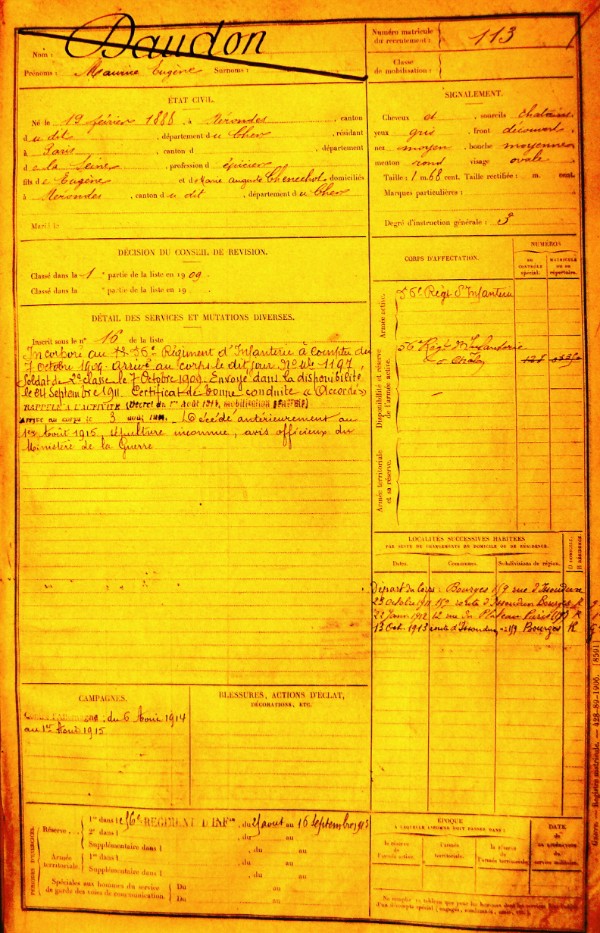 Nom : Daudon
Prénoms : Maurice Eugène Surnoms :
Numéro matricule du recrutement : 113
Classe de mobilisation :
ÉTAT CIVIL.
Né le 19 février 1888, à Nérondes, canton
du dit, département du Cher, résidant
à Paris, canton d, département
de la Seine, profession d'épicier
fils d'Eugène et de Marie Auguste Chenechot, domiciliés
à Nérondes, canton du dit, département du Cher
Marié le
SIGNALEMENT.
Cheveux et sourcils chatains
yeux gris, front découvert
nez moyen, bouche moyenne
menton rond visage ovale
Taille : 1 m. 68 cent. Taille rectifiée : m. cent.
Marques particulières :
Degré d'instruction générale : 3
DÉCISION DU CONSEIL DE REVISION.
Classé dans la 1e partie de la liste en 1909
Classé dans la e partie de la liste en 19
DÉTAIL DES SERVICES ET MUTATIONS DIVERSES.
Inscrit sous le n° 16 de la liste
Incorporé au 56e Régiment d'Infanterie à compter du
7 Octobre 1909. Arrivé au corps le dit jour, No Mle 1197,
Soldat de 2e classe le 7 Octobre 1909. Envoyé dans la disponibilité
le 24 Septembre 1911. Certificat de bonne conduite "Accordé"
RAPPELÉ À L'ACTIVITÉ (Décret du 1er Août 1914, mobilisation générale)
Arrivé au corps le août 1914. Décédé antérieurement au
1er Août 1915. Sépulture inconnue, avis officieux du
Ministère de la Guerre
CORPS D'AFFECTATION.
NUMÉROS
AU CONTRÔLE spécial.
MATRICULE OU AU répertoire.
Armée active.
56e Régt d'Infanterie
Disponibilité et réserve de l'armée active.
56e Régt d'Infanterie
Armée territoriale et sa réserve.
LOCALITÉS SUCCESSIVES HABITÉES
PAR SUITE DE CHANGEMENTS DE DOMICILE OU DE RÉSIDENCE.
Dates. Communes. Subdivisions de région. D. DOMICILE. R. RÉSIDENCE.
Départ du Corps : Bourges 159 rue d'Issoudun
23 Octobre 1911 159 route d'Issoudun Bourges R
22 Janv. 1912 12 rue du Plateau Paris (19) R
13 Oct 1913 route d'Issoudun 159 Bourges R
CAMPAGNES.
: du 6 Août 1914
au 1er Août 1915
BLESSURES, ACTIONS D'ÉCLAT,
DÉCORATIONS, ETC.
PÉRIODES D'EXERCICES.
Réserve
1re dans le 56e RÉGIMENT D'INFie, du août au 16 Septembre 1913
2e dans l , du au
Supplémentaire dans l , du au
Armée territoriale
1re dans l , du au
Supplémentaire dans l , du au
Spéciales aux hommes du service de garde des voies de communication. Du au
Du au
ÉPOQUE
À LAQUELLE L'HOMME DOIT PASSER DANS :
la réserve de l'armée active.
l'armée territoriale.
la réserve de l'armée territoriale.
DATE de la LIBÉRATION du service militaire.
Ne remplir ce tableau que pour les hommes dont les services
d'un décompte spécial (engagés, omis, etc.)
Guerre. — Registre matricule. — 428-89-1906. [8591]